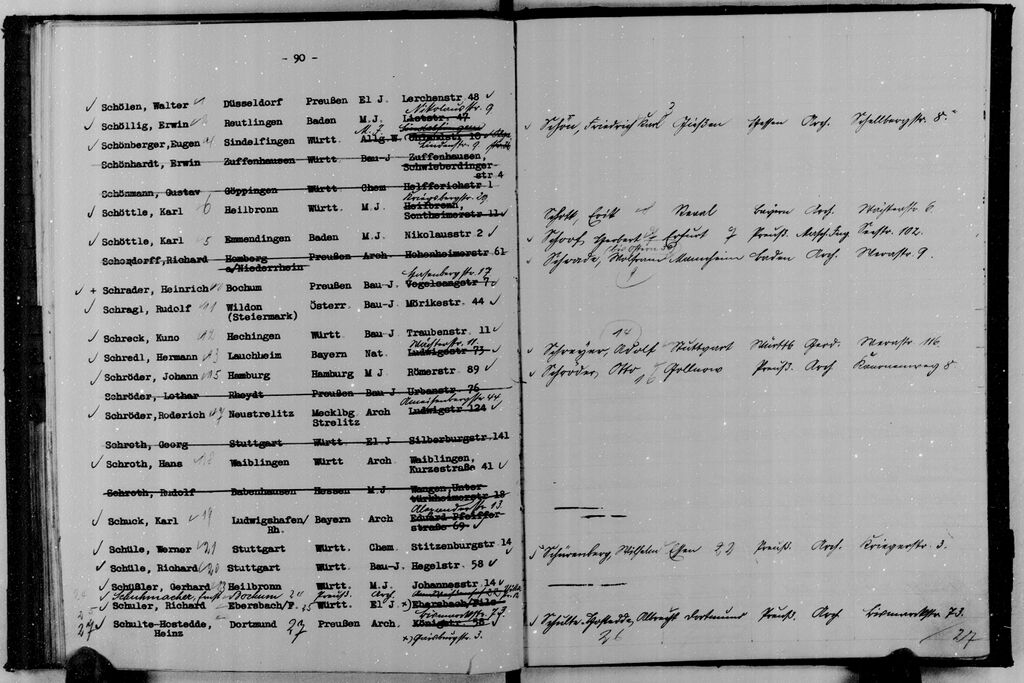 - 90 -
Schölen, Walter Düsseldorf Preußen El J. Lerchenstr. 48
Nikolausstr. 9
Schöllig, Erwin Reutlingen Baden M.J. Liststr. 47
M.J.
Schönberger, Eugen Sindelfingen Württ. Allg.W. 18
Lindenstr. 9
Schönhardt, Erwin Zuffenhausen Württ. Bau-J Zuffenhausen,
Schwieberdinger-
str 4
Schönmann, Gustav Göppingen Württ Chem Helfferichstr 1
Kriegsbergstr. 29
Schöttle, Karl 6 Heilbronn Württ. M.J. Heilbronn,
Sontheimerstr. 11
Schöttle, Karl 5 Emmendingen Baden M.J. Nikolausstr 2
Schondorff, Richard Homberg Preußen Arch Hohenheimerstr 61
a/Niederrhein
Hasenbergstr. 17
+ Schrader, Heinrich Bochum Preußen Bau-J. Vogelsangstr 7
Schragl, Rudolf Wildon Österr. Bau-J. Mörikestr. 44
(Steiermark)
Schreck, Kuno Hechingen Württ. Bau-J Traubenstr. 11
Schredl, Hermann 13 Lauchheim Bayern Nat. Ludwigstr 73
Schröder, Johann 15 Hamburg Hamburg M J. Römerstr. 89
Schröder, Lothar Rheydt Preußen Bau-J Urbanstr 76
Ameisenbergstr. 44
Schröder, Roderich Neustrelitz Mecklbg Arch Ludwigstr 124
Strelitz
Schroth, Georg Stuttgart Württ. El J Silberburgstr. 141
Schroth, Hans 18 Waiblingen Württ Arch. Waiblingen,
Kurzestraße 41
Schroth, Rudolf Babenhausen Hessen M.J Wangen, Unter
türkheimerstr 18
Alexanderstr. 13
Schuck, Karl 19 Ludwigshafen/ Bayern Arch Eduard Pfeiffer
Rh. straße 69
Schüle, Werner 21 Stuttgart Württ. Chem. Stitzenburgstr. 14
Schüle, Richard 20 Stuttgart Württ. Bau-J. Hegelstr. 58
Schüßler, Gerhard Heilbronn Württ. M.J. Johannesstr. 14
Schuhmacher, Ernst Bochum 24 Preuß. Arch.
Schuler, Richard Ebersbach/F. 25 Württ. El J x) Ebersbach/Fils
27 Schulte-Hostedde, Dortmund 27 Preußen Arch. Königstr 58
Heinz
x) Gaisburgstr. 3.
Schön, Friedrich Karl Gießen Hessen Arch. Schellbergstr. 8.
Schott, Erik Bayern Arch. 6.
Schorf, Herbert Erfurt Preuß. Masch.Ing. Seestr. 102.
Schrade, Wolfram Mannheim Baden Arch. Werastr. 9.
9
14
Schreyer, Adolf Stuttgart Württb. Gerd. Werastr. 116
Schröder, Otto 16 Gollnow Preuß. Arch 8
Schürenberg, Wilhelm Essen 22 Preuß. Arch. Kriegerstr. 3.
Schulte-Hostedde, Albrecht Dortmund Preuß. Arch Bismarckstr. 73.
26
27